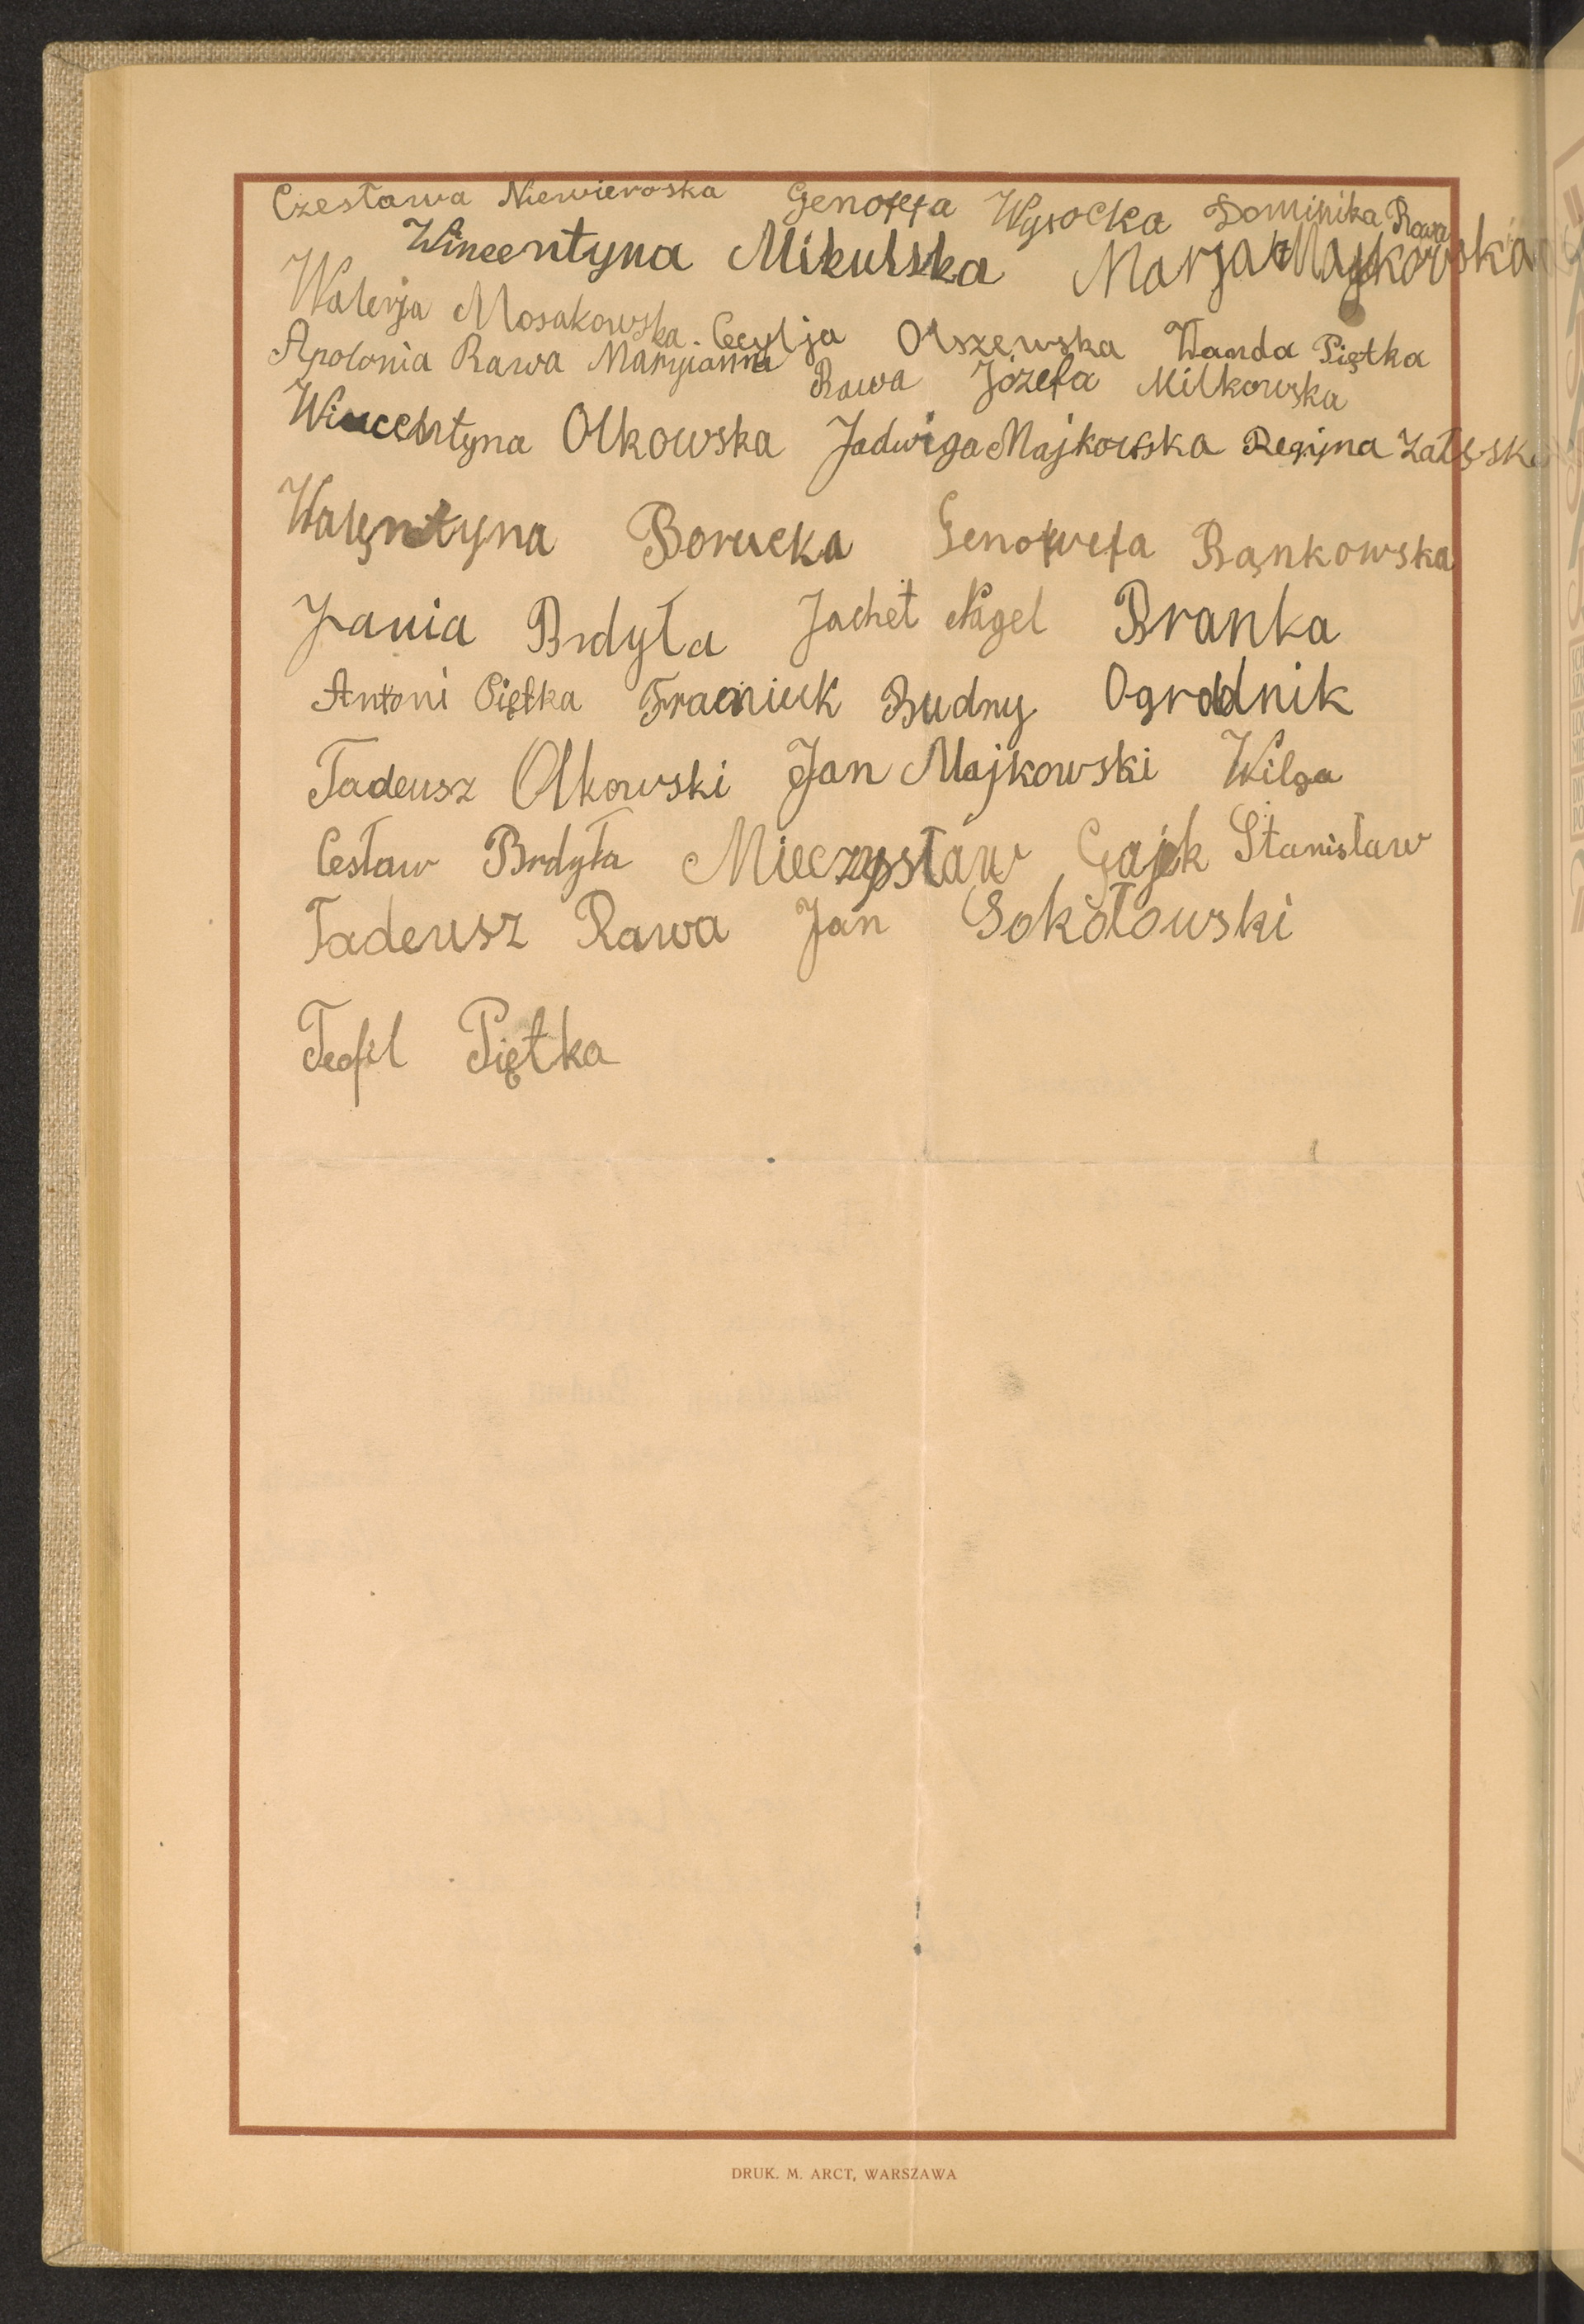 Czesława Niewieroska Genofefa Wysocka Dominika Rawa
Wincentyna Mikulska Marja Majkowska
Walerja Mosakowska. Cecylja Olszewska Wanda Piętka
Apolonia Rawa Maryianna Rawa Józefa Milkowska
Wincentyna Olkowska Jadwiga Majkowska Regina Załęska
Walęntyna Borucka Genowefa Bąnkowska
Brdyła Jachet Nagel Branka
Antoni Piętka Budny Ogrodnik
Tadeusz Olkowski Jan Majkowski Wilga
Cesław Brdyła Mieczysław Gajek Stanisław
Tadeusz Rawa Jan Sokołowski
Teofil Piętka
DRUK. M. ARCT, WARSZAWA